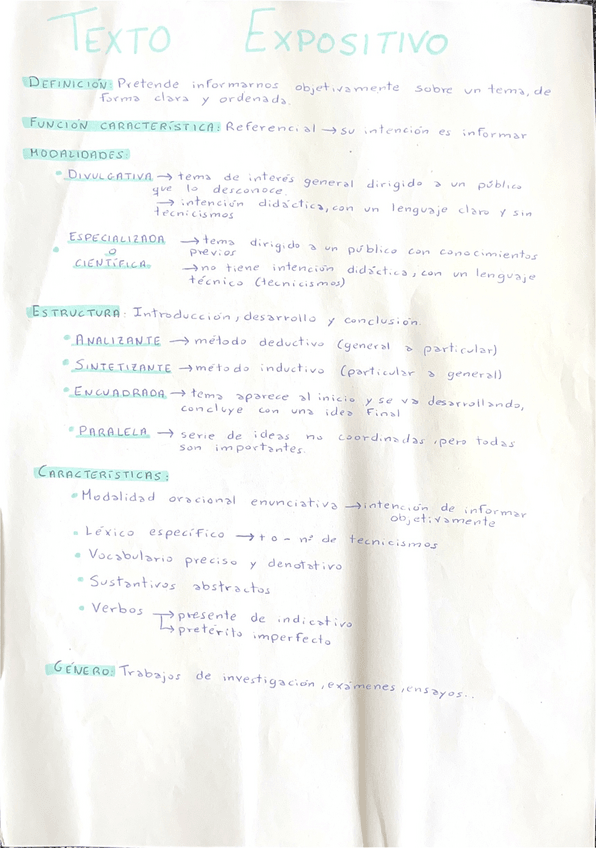 TEXTO EXPOSITIVO
DEFINICIÓN: Pretende informarnos objetivamente sobre un tema, de
forma clara y ordenada.
FUNCIÓN CARACTERÍSTICA: Referencial → su intención es informar
MODALIDADES:
• DIVULGATIVA → tema de interés general dirigido a un público
que lo desconoce.
→ intención didáctica, con un lenguaje claro y sin
tecnicismos
ESPECIALIZADA → tema dirigido a un público con conocimientos
• o previos
CIENTÍFICA → no tiene intención didáctica, con un lenguaje
técnico (tecnicismos)
ESTRUCTURA: Introducción, desarrollo y conclusión.
• ANALIZANTE → método deductivo (general a particular)
• SINTETIZANTE → método inductivo (particular a general)
• ENCUADRADA → tema aparece al inicio y se va desarrollando,
concluye con una idea final
• PARALELA → serie de ideas no coordinadas, pero todas
son importantes.
CARACTERÍSTICAS:
• Modalidad oracional enunciativa → intención de informar
objetivamente
• Léxico específico → + o - nº de tecnicismos
• Vocabulario preciso y denotativo
• Sustantivos abstractos
• Verbos → presente de indicativo
→ pretérito imperfecto
GÉNERO: Trabajos de investigación, exámenes, ensayos...